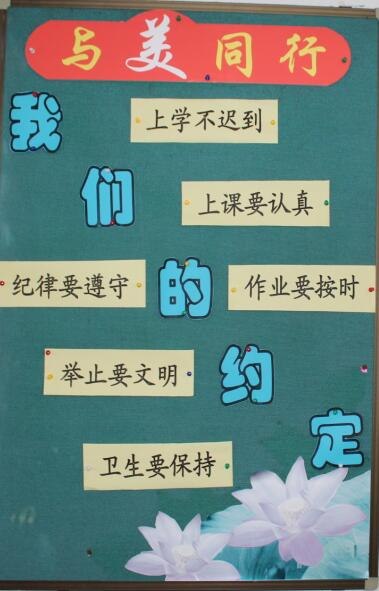 与美同行
我们的约定
上学不迟到
上课要认真
纪律要遵守
作业要按时
举止要文明
卫生要保持